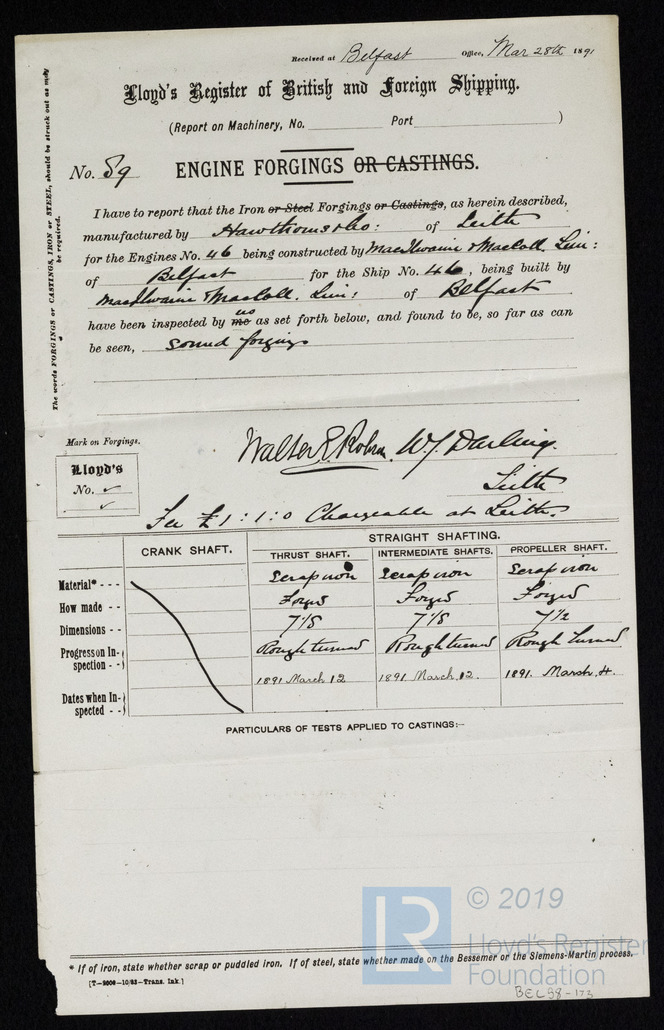 Received at Belfast Office, Mar 28th 1891
Lloyd's Register of British and Foreign Shipping.
(Report on Machinery, No. Port )
No. 89 ENGINE FORGINGS OR CASTINGS.
I have to report that the Iron or Steel Forgings or Castings, as herein described,
manufactured by Hawthorns & Co: of Leith
for the Engines No. 46 being constructed by MacIlwaine & MacColl Lim:
of Belfast for the Ship No. 46, being built by
MacIlwaine & MacColl. Lim: of Belfast
us
have been inspected by me as set forth below, and found to be, so far as can
be seen, sound forgings
The words FORGINGS or CASTINGS, IRON or STEEL, should be struck out as may
be required.
Mark on Forgings.
Lloyd's
No.
Walter E Robson. W. J. Darling.
Leith
Fee £1:1:0 Chargeable at Leith.
CRANK SHAFT. STRAIGHT SHAFTING.
THRUST SHAFT. INTERMEDIATE SHAFTS. PROPELLER SHAFT.
Material* - - - Scrap iron Scrap iron Scrap iron
How made - - Forged Forged Forged
Dimensions - - 7 1/8 7 1/8 7 1/2
Progress on In- Rough turned Rough turned Rough turned
spection - -
1891 March 12 1891 March, 12. 1891. March, 4.
Dates when In-
spected - -
PARTICULARS OF TESTS APPLIED TO CASTINGS:-
© 2019
LR
Lloyd's Register
Foundation
* If of iron, state whether scrap or puddled iron. If of steel, state whether made on the Bessemer or the Siemens-Martin process.
[T-2006-10/83-Trans. Ink.]
BEL98-173